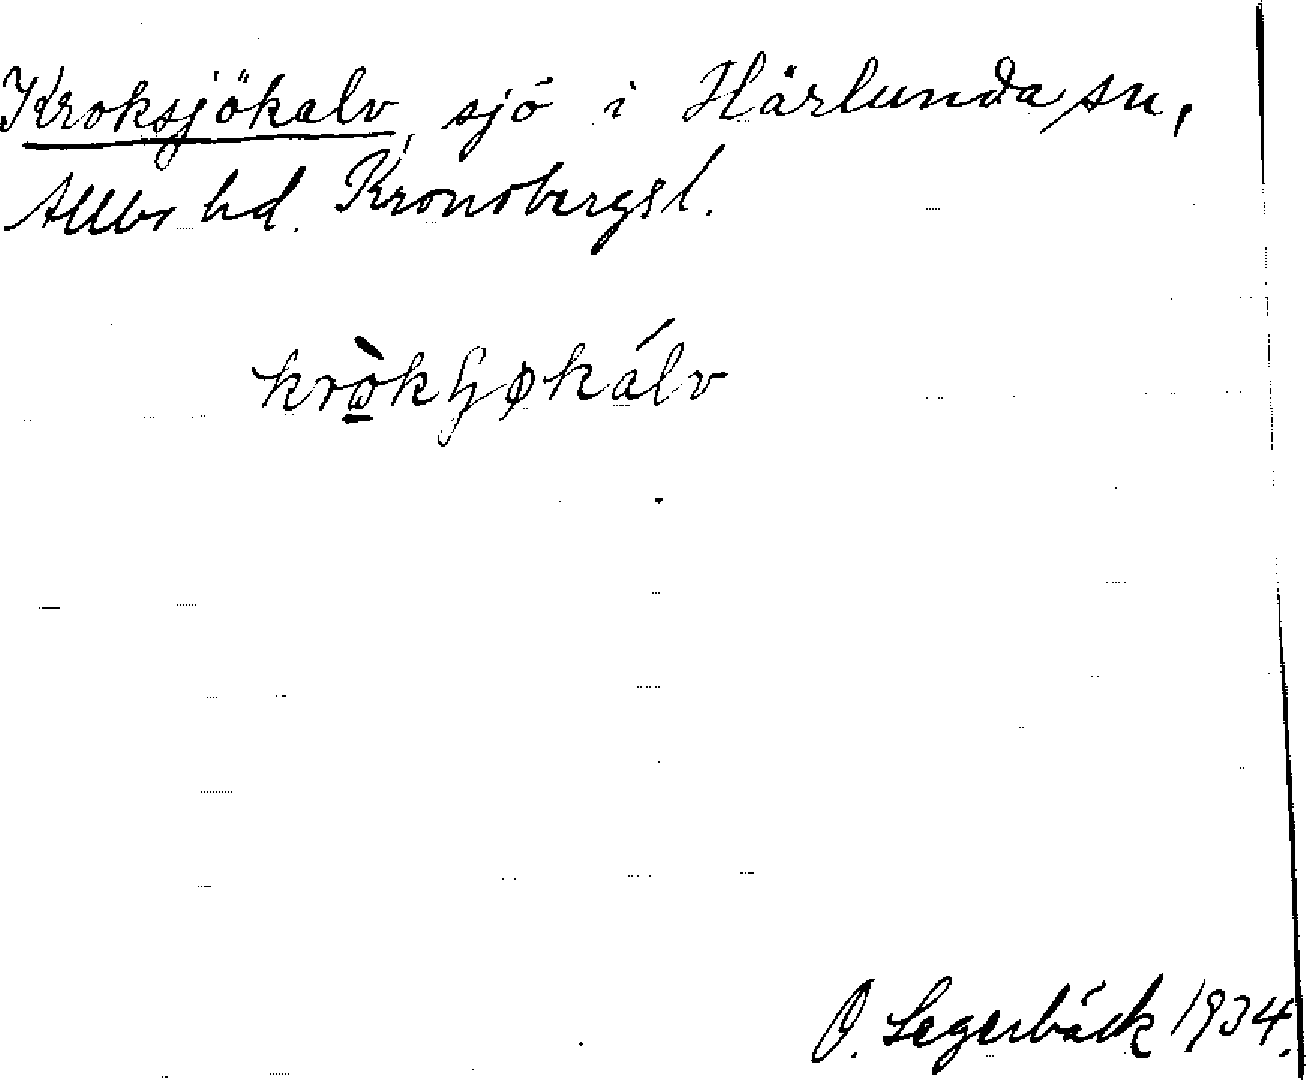 Kroksjökalv, sjö i Härlunda sn,
Allbo hd. Kronobergs l.
krὼkɧøkálv
O. Segerbäck 1934.